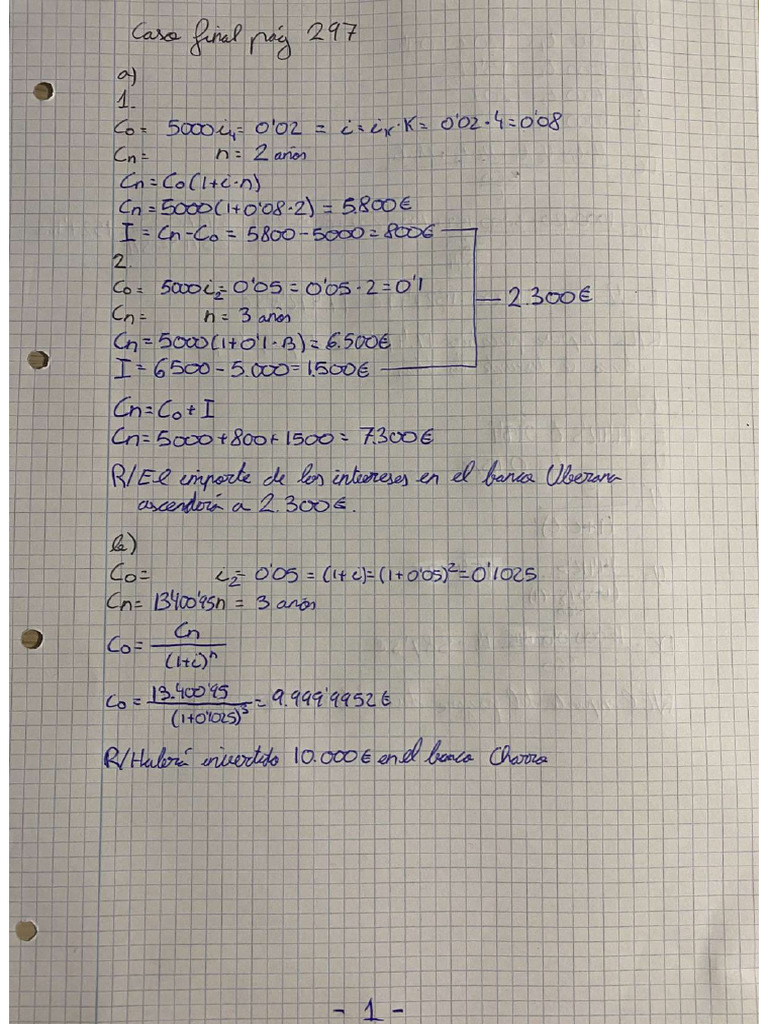 Caso final pág 297
a)
1.
Co = 5000 i4 = 0'02 = i = iK · K = 0'02 · 4 = 0'08
Cn = n = 2 años
Cn = Co(1+i·n)
Cn = 5000(1+0'08·2) = 5.800€
I = Cn - Co = 5800 - 5000 = 800€
2.
Co = 5000 i2 = 0'05 = 0'05 · 2 = 0'1
— 2.300€
Cn = n = 3 años
Cn = 5000(1+0'1·3) = 6.500€
I = 6500 - 5.000 = 1.500€
Cn = Co + I
Cn = 5000 + 800 + 1500 = 7.300€
R/ El importe de los intereses en el banco
ascenderá a 2.300€.
b)
Co = i2 = 0'05 = (1+i) = (1+0'05)² = 0'1025
Cn = 13400'95 n = 3 años
Co = Cn / (1+i)ⁿ
Co = 13.400'95 / (1+0'1025)³ = 9.999'9952€
R/ Habrá invertido 10.000€ en el banco Charro
- 1 -